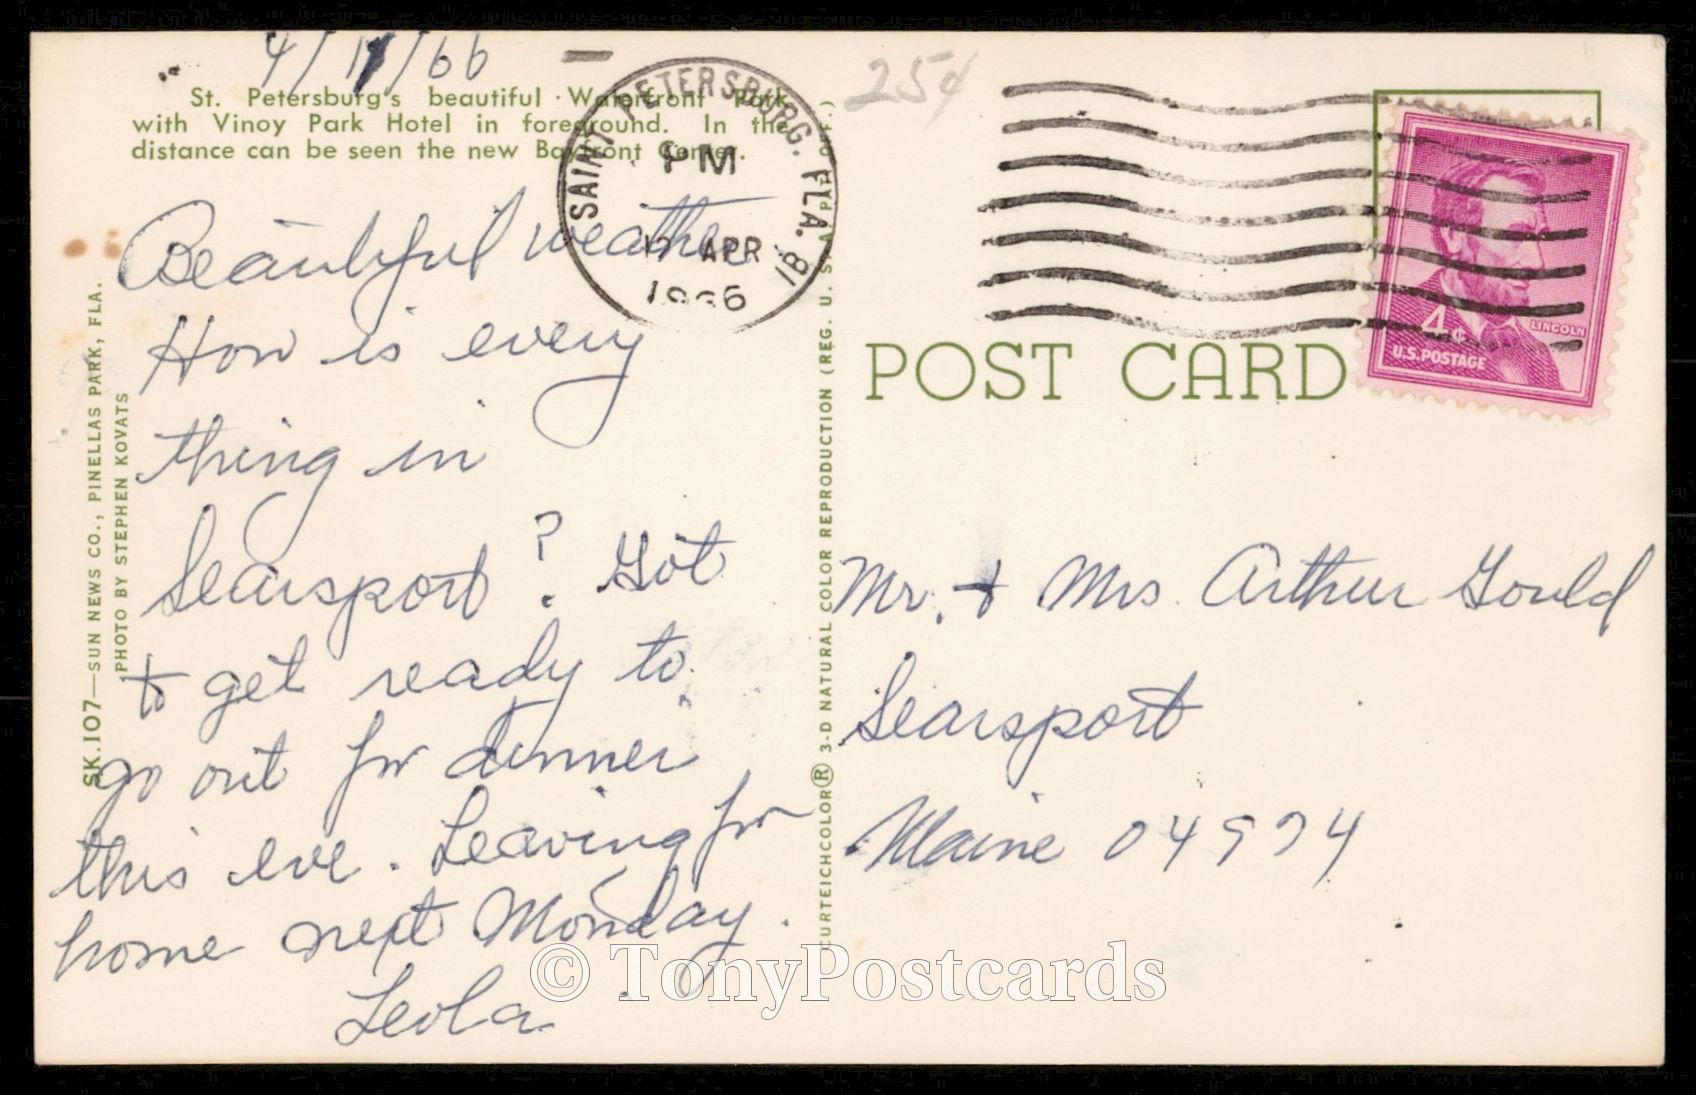 4/11/66
St. Petersburg's beautiful Waterfront Park
with Vinoy Park Hotel in foreground. In the
distance can be seen the new Bayfront Center.
Beautiful weather
How is every
thing in
Searsport? Got
to get ready to
go out for dinner
this eve. Leaving for
home next Monday.
Leola
SK.107—SUN NEWS CO., PINELLAS PARK, FLA.
PHOTO BY STEPHEN KOVATS
SAINT PETERSBURG, FLA.
PM
APR
1966
25¢
CURTEICHCOLOR® 3-D NATURAL COLOR REPRODUCTION (REG. U. S. A. PAT. OFF.)
POST CARD
4¢
LINCOLN
U.S. POSTAGE
Mr. & Mrs Arthur Gould
Searsport
Maine 04974
© TonyPostcards